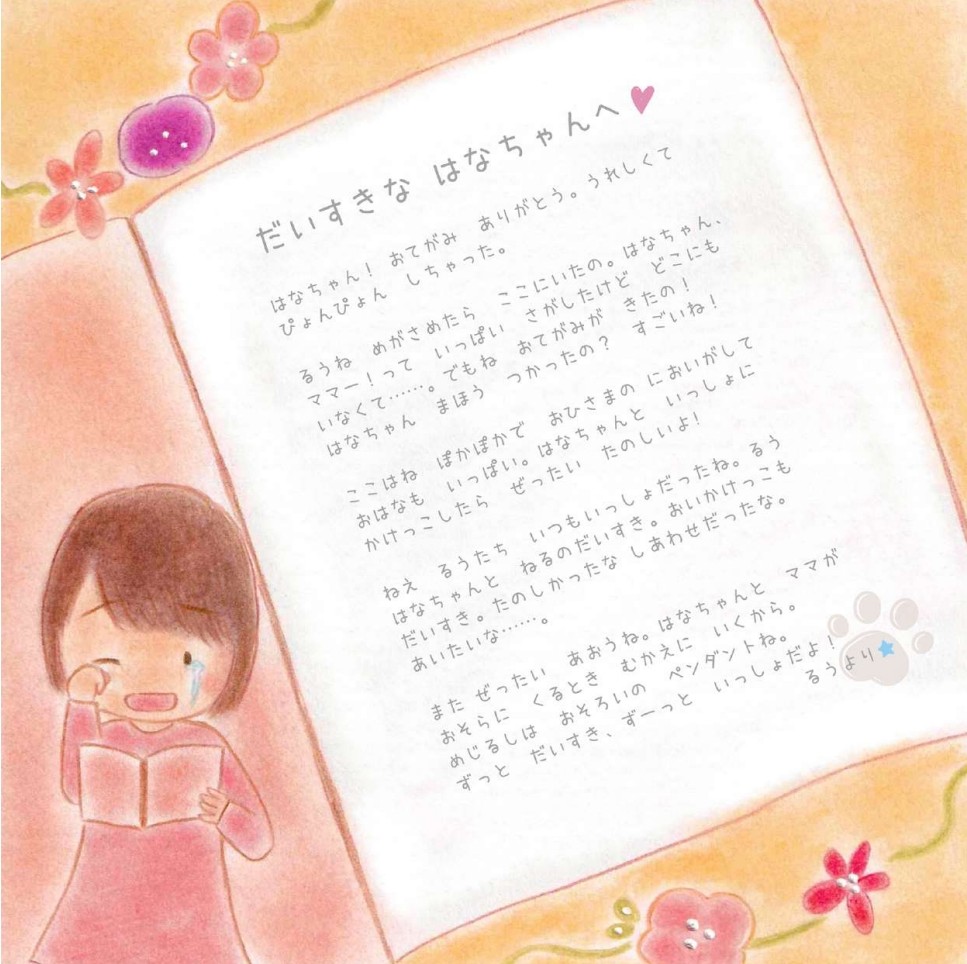 だいすきな はなちゃんへ♥
はなちゃん！ おてがみ ありがとう。うれしくて
ぴょんぴょん しちゃった。
るうね めがさめたら ここにいたの。はなちゃん、
ママー！って いっぱい さがしたけど どこにも
いなくて……。でもね おてがみが きたの！
はなちゃん まほう つかったの？ すごいね！
ここはね ぽかぽかで おひさまの においがして
おはなも いっぱい。はなちゃんと いっしょに
かけっこしたら ぜったい たのしいよ！
ねえ るうたち いつもいっしょだったね。るう
はなちゃんと ねるのだいすき。おいかけっこも
だいすき。たのしかったな しあわせだったな。
あいたいな……。
また ぜったい あおうね。はなちゃんと ママが
おそらに くるとき むかえに いくから。
めじるしは おそろいの ペンダントね。
ずっと だいすき、ずーっと いっしょだよ！
るうより